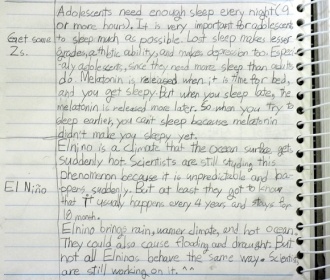 Adolescents need enough sleep every night (9
or more hours). It is very important for adolescent
Get some to sleep much as possible. Lost sleep makes lesser
Zs. grades, athletic ability, and makes depression too. Especi-
ally adolescents, since they need more sleep than adults
do. Melatonin is released when it is time for bed,
and you get sleepy. But when you sleep late, the
melatonin is released more later. So when you try to
sleep earlier, you can't sleep because melatonin
didn't make you sleepy yet.
Elnino is a climate that the ocean surface gets
suddenly hot. Scientists are still studying this
phenomenon because it is unpredictable and ha-
El Niño ppens suddenly. But at least they got to know
that it usually happens every 4 years and stays for
18 month.
Elnino brings rain, warmer climate, and hot ocean.
They could also cause flooding and draught. But
not all Elninos behave the same way. Scientist
are still working on it. ^^